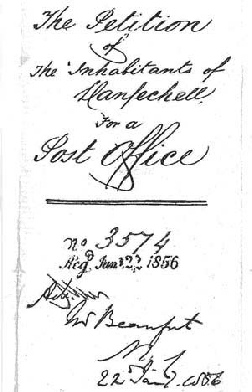 The Petition
of
The Inhabitants of
Llanfechell
For a
Post Office
No 3574
Regd Jany 22, 1856
Mr Beaufort
22 Jany 1856